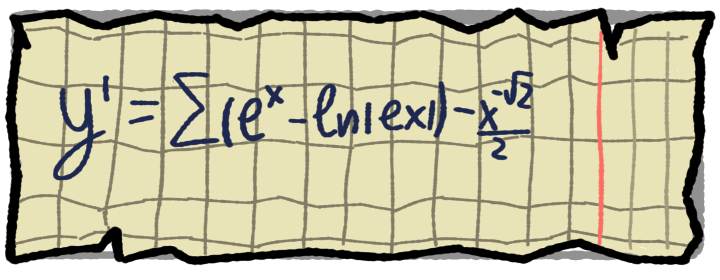 y' = ∑(e^x - ln|ex|) - x^{-√2}/2